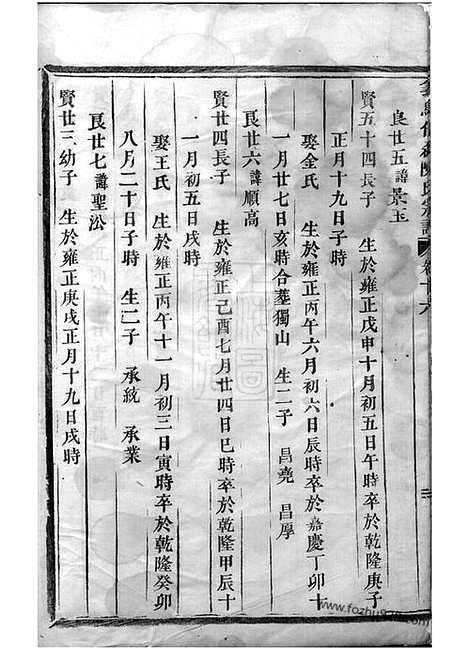 陳氏宗譜 卷十六
良廿五諱景玉
賢五十四長子 生於雍正戊申十月初五日午時卒於乾隆庚子
正月十九日子時
娶金氏 生於雍正丙午六月初六日辰時卒於嘉慶丁卯十
一月廿七日亥時合墓獨山 生二子 昌堯 昌厚
良廿六諱順高
賢廿四長子 生於雍正己酉七月廿四日巳時卒於乾隆甲辰十
一月初五日戌時
娶王氏 生於雍正丙午十一月初三日寅時卒於乾隆癸卯
八月二十日子時 生二子 承統 承業
良廿七諱聖㳂
賢廿三幼子 生於雍正庚戌正月十九日戌時
www.fozhu920.com